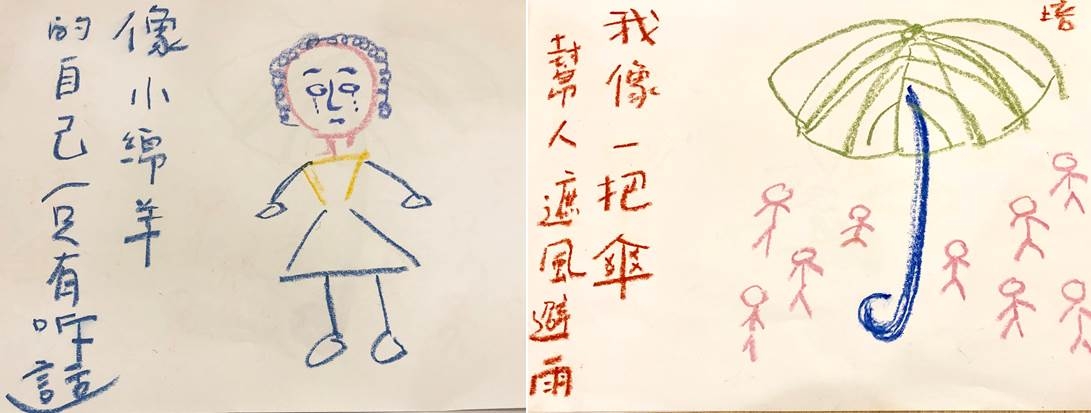 像小綿羊
的自己（只有听話）
我像一把傘
幫人遮風避雨
培